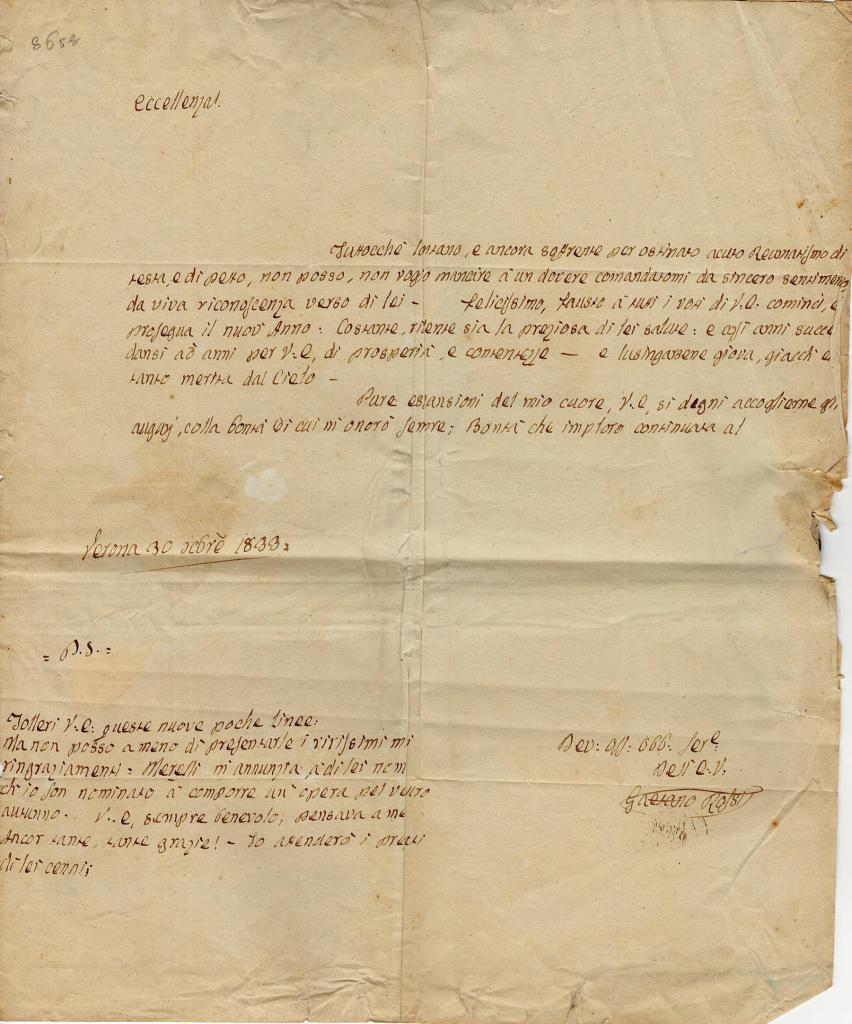 8658
Eccellenza!
Tutocchè lontano, e ancora soffrente per ostinato acuto Reumatismo di
testa, e di petto, non posso, non voglio mancare à un dovere comandatomi da sincero sentimento,
da viva riconoscenza verso di lei - Felicissimo, fausto à tutti i voti di V.E. cominci, e
prosegua il nuov' Anno: Costante, ridente sia la preziosa di lei salute: e così anni succe
dansi ad anni per V.E, di prosperità, e contentezze — e lusingarsene giova, giacchè
tanto merita dal Cielo -
Pure espansioni del mio cuore, V.E, si degni accoglierne gli
augurj, colla bontà di cui m'onorò semre; Bontà che imploro continuata al
Verona 30 Xbrẽ 1833:
= P.S. =
Tolleri V.E: queste nuove poche linee:
Ma non posso a meno di presentarle i vivissimi mi
ringraziamenti: Merelli m'annunzia à di lei nom
ch'io son nominato à comporre un' opera pel vetro
autunno. V.E, sempre benevolo, pensava a me
Ancor tante, tante grazie! - Io attenderò i
di lei cenni;
Dev: Aff: Obb: Ser.e
Dell' E.V.
Gaetano Rossi